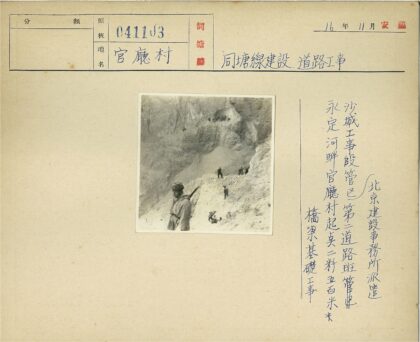 分類
原板
041103
地名
官廳村
同塘線
同塘線建設 道路工事
16年11月
安福
（北京建設事務所派遣
沙城工事段管区第二道路班管内
永定河畔官廳村起点二粁五百米
橋梁基礎工事